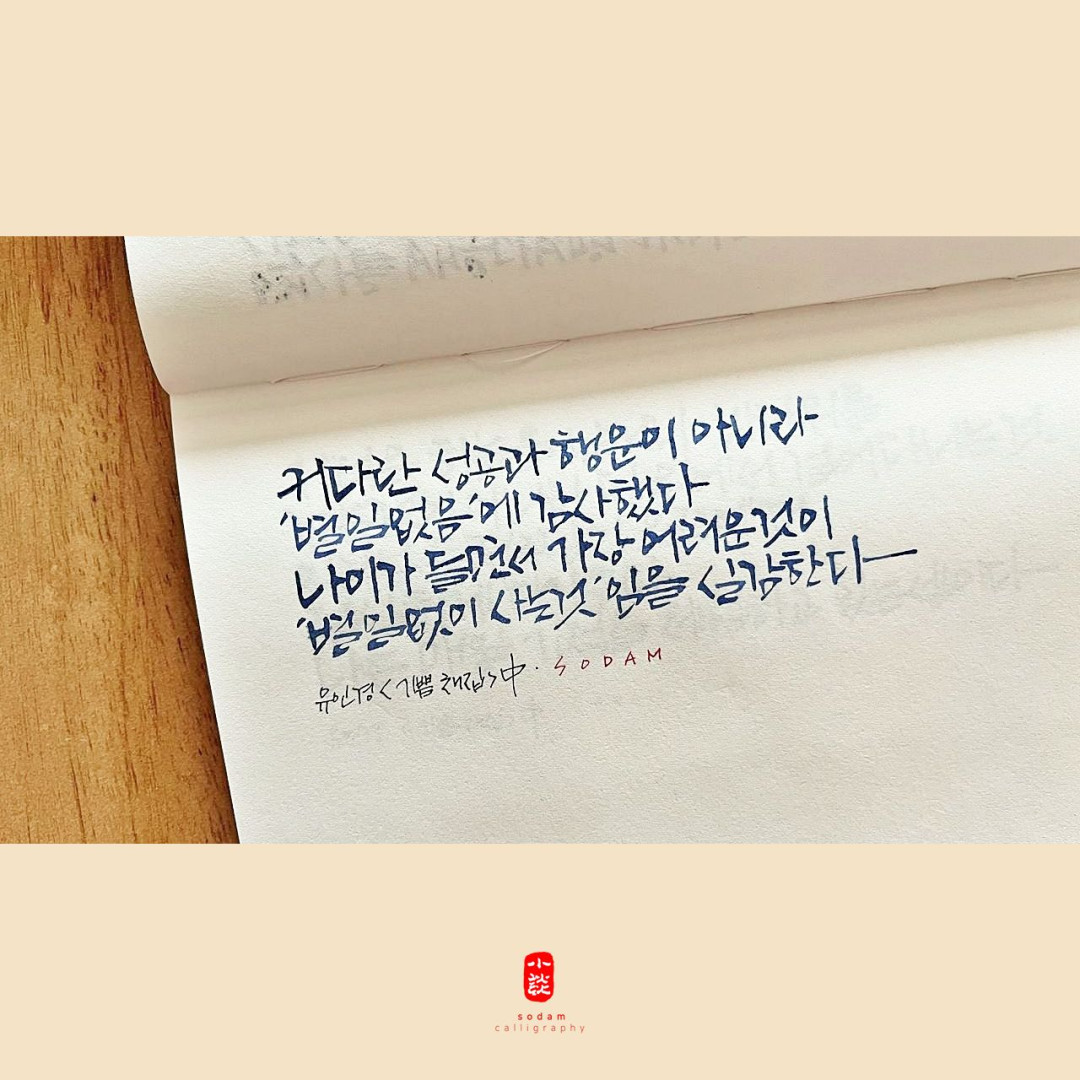 커다란 성공과 행운이 아니라
'별일없음'에 감사했다
나이가 들면서 가장 어려운것이
'별일없이 사는것'임을 실감한다
유인경 <기쁨 채집> 中 · SODAM
小談
sodam
calligraphy